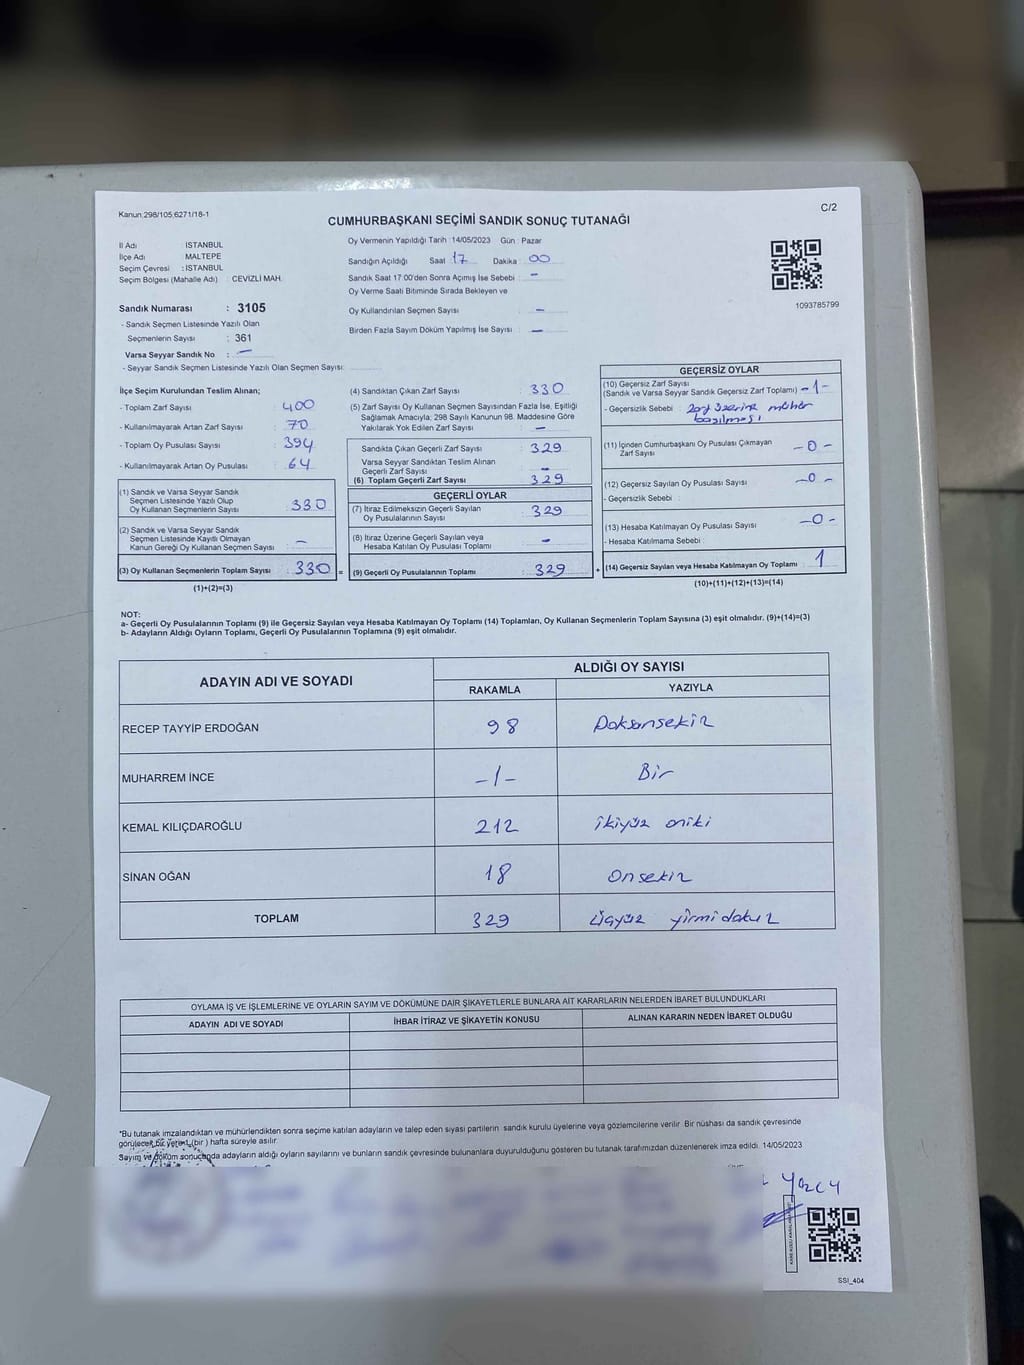 Kanun.298/105,6271/18-1
C/2
CUMHURBAŞKANI SEÇİMİ SANDIK SONUÇ TUTANAĞI
İl Adı : İSTANBUL
İlçe Adı : MALTEPE
Seçim Çevresi : İSTANBUL
Seçim Bölgesi (Mahalle Adı) : CEVİZLİ MAH.
Oy Vermenin Yapıldığı Tarih :14/05/2023 Gün : Pazar
Sandığın Açıldığı Saat : 17 Dakika : 00
Sandık Saat 17:00'den Sonra Açımış İse Sebebi : -
Oy Verme Saati Bitiminde Sırada Bekleyen ve
Oy Kullandırılan Seçmen Sayısı : -
Birden Fazla Sayım Döküm Yapılmış İse Sayısı : -
1093785799
Sandık Numarası : 3105
- Sandık Seçmen Listesinde Yazılı Olan
Seçmenlerin Sayısı : 361
Varsa Seyyar Sandık No : -
- Seyyar Sandık Seçmen Listesinde Yazılı Olan Seçmen Sayısı:
İlçe Seçim Kurulundan Teslim Alınan;
- Toplam Zarf Sayısı : 400
- Kullanılmayarak Artan Zarf Sayısı : 70
- Toplam Oy Pusulası Sayısı : 394
- Kullanılmayarak Artan Oy Pusulası : 64
(1) Sandık ve Varsa Seyyar Sandık
Seçmen Listesinde Yazılı Olup
Oy Kullanan Seçmenlerin Sayısı : 330
(2) Sandık ve Varsa Seyyar Sandık
Seçmen Listesinde Kayıtlı Olmayan
Kanun Gereği Oy Kullanan Seçmen Sayısı : -
(3) Oy Kullanan Seçmenlerin Toplam Sayısı : 330 =
(1)+(2)=(3)
(4) Sandıktan Çıkan Zarf Sayısı : 330
(5) Zarf Sayısı Oy Kullanan Seçmen Sayısından Fazla İse, Eşitliği
Sağlamak Amacıyla; 298 Sayılı Kanunun 98. Maddesine Göre
Yakılarak Yok Edilen Zarf Sayısı : -
Sandıkta Çıkan Geçerli Zarf Sayısı : 329
Varsa Seyyar Sandıktan Teslim Alınan
Geçerli Zarf Sayısı : -
(6) Toplam Geçerli Zarf Sayısı : 329
GEÇERLİ OYLAR
(7) İtiraz Edilmeksizin Geçerli Sayılan
Oy Pusulalarının Sayısı : 329
(8) İtiraz Üzerine Geçerli Sayılan veya
Hesaba Katılan Oy Pusulası Toplamı : -
(9) Geçerli Oy Pusulalarının Toplamı : 329 +
GEÇERSİZ OYLAR
(10) Geçersiz Zarf Sayısı
(Sandık ve Varsa Seyyar Sandık Geçersiz Zarf Toplamı) : -1-
- Geçersizlik Sebebi : Zarf üzerine mühür
basılması
(11) İçinden Cumhurbaşkanı Oy Pusulası Çıkmayan
Zarf Sayısı : -0-
(12) Geçersiz Sayılan Oy Pusulası Sayısı : -0-
- Geçersizlik Sebebi :
(13) Hesaba Katılmayan Oy Pusulası Sayısı : -0-
- Hesaba Katılmama Sebebi :
(14) Geçersiz Sayılan veya Hesaba Katılmayan Oy Toplamı : 1
(10)+(11)+(12)+(13)=(14)
NOT:
a- Geçerli Oy Pusulalarının Toplamı (9) ile Geçersiz Sayılan veya Hesaba Katılmayan Oy Toplamı (14) Toplamları, Oy Kullanan Seçmenlerin Toplam Sayısına (3) eşit olmalıdır. (9)+(14)=(3)
b- Adayların Aldığı Oyların Toplamı, Geçerli Oy Pusulalarının Toplamına (9) eşit olmalıdır.
ADAYIN ADI VE SOYADI
ALDIĞI OY SAYISI
RAKAMLA YAZIYLA
RECEP TAYYİP ERDOĞAN 98 Doksansekiz
MUHARREM İNCE -1- Bir
KEMAL KILIÇDAROĞLU 212 ikiyüz oniki
SİNAN OĞAN 18 Onsekiz
TOPLAM 329 üçyüz yirmidokuz
OYLAMA İŞ VE İŞLEMLERİNE VE OYLARIN SAYIM VE DÖKÜMÜNE DAİR ŞİKAYETLERLE BUNLARA AİT KARARLARIN NELERDEN İBARET BULUNDUKLARI
ADAYIN ADI VE SOYADI İHBAR İTİRAZ VE ŞİKAYETİN KONUSU ALINAN KARARIN NEDEN İBARET OLDUĞU
*Bu tutanak imzalandıktan ve mühürlendikten sonra seçime katılan adayların ve talep eden siyasi partilerin sandık kurulu üyelerine veya gözlemcilerine verilir. Bir nüshası da sandık çevresinde
görülecek bir yere 1 (bir) hafta süreyle asılır.
Sayım ve döküm sonucunda adayların aldığı oyların sayılarını ve bunların sandık çevresinde bulunanlara duyurulduğunu gösteren bu tutanak tarafımızdan düzenlenerek imza edildi. 14/05/2023
SSI_404